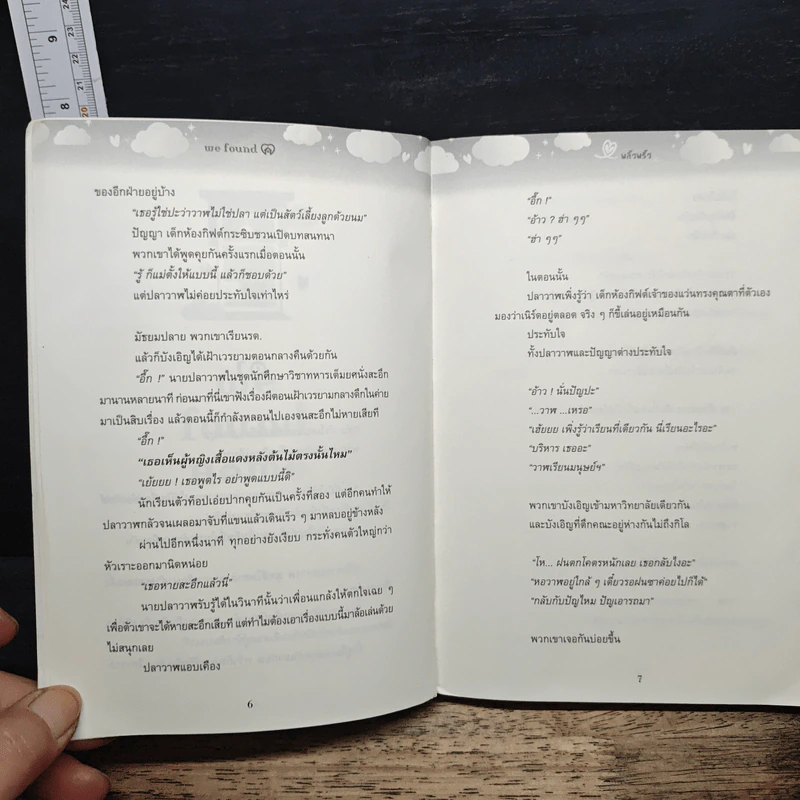 we found
ของอีกฝ่ายอยู่บ้าง
“เธอรู้ใช่ปะว่าวาฬไม่ใช่ปลา แต่เป็นสัตว์เลี้ยงลูกด้วยนม”
ปัญญา เด็กห้องกิฟต์กระซิบชวนเปิดบทสนทนา
พวกเขาได้พูดคุยกันครั้งแรกเมื่อตอนนั้น
“รู้ ก็แม่ตั้งให้แบบนี้ แล้วก็ชอบด้วย”
แต่ปลาวาฬไม่ค่อยประทับใจเท่าไหร่
มัธยมปลาย พวกเขาเรียนรด.
แล้วก็บังเอิญได้เฝ้าเวรยามตอนกลางคืนด้วยกัน
“อึ๊ก !” นายปลาวาฬในชุดนักศึกษาวิชาทหารเต็มยศนั่งสะอึก
มานานหลายนาที ก่อนมาที่นี่เขาฟังเรื่องผีตอนเฝ้าเวรยามกลางดึกในค่าย
มาเป็นสิบเรื่อง แล้วตอนนี้ก็กำลังหลอนไปเองจนสะอึกไม่หายเสียที
“อึ๊ก !”
“เธอเห็นผู้หญิงเสื้อแดงหลังต้นไม้ตรงนั้นไหม”
“เย้ยยย ! เธอพูดไร อย่าพูดแบบนี้ดิ”
นักเรียนตัวท็อปเอ่ยปากคุยกันเป็นครั้งที่สอง แต่อีกคนทำให้
ปลาวาฬกลัวจนเผลอมาจับที่แขนแล้วเดินเร็ว ๆ มาหลบอยู่ข้างหลัง
ผ่านไปอีกหนึ่งนาที ทุกอย่างยังเงียบ กระทั่งคนตัวใหญ่กว่า
หัวเราะออกมานิดหน่อย
“เธอหายสะอึกแล้วนี่”
นายปลาวาฬรับรู้ได้ในวินาทีนั้นว่าเพื่อนแกล้งให้ตกใจเฉย ๆ
เพื่อตัวเขาจะได้หายสะอึกเสียที แต่ทำไมต้องเอาเรื่องแบบนี้มาล้อเล่นด้วย
ไม่สนุกเลย
ปลาวาฬแอบเคือง
6
“อึ๊ก !”
“อ้าว ? ฮ่า ๆๆ”
“ฮ่า ๆๆ”
ในตอนนั้น
ปลาวาฬเพิ่งรู้ว่า เด็กห้องกิฟต์เจ้าของแว่นทรงคุณตาที่ตัวเอง
มองว่าเนิร์ดอยู่ตลอด จริง ๆ ก็ขี้เล่นอยู่เหมือนกัน
ประทับใจ
ทั้งปลาวาฬและปัญญาต่างประทับใจ
“อ้าว ! นั่นปัญปะ”
“...วาฬ ...เหรอ”
“เฮ้ยยย เพิ่งรู้ว่าเรียนที่เดียวกัน นี่เรียนอะไรอะ”
“บริหาร เธออะ”
“วาฬเรียนมนุษย์ฯ”
พวกเขาบังเอิญเข้ามหาวิทยาลัยเดียวกัน
และบังเอิญที่ตึกคณะอยู่ห่างกันไม่ถึงกิโล
“โห... ฝนตกโคตรหนักเลย เธอกลับไงอะ”
“หอวาฬอยู่ใกล้ ๆ เดี๋ยวรอฝนซาค่อยไปก็ได้”
“กลับกับปัญไหม ปัญเอารถมา”
พวกเขาเจอกันบ่อยขึ้น
7